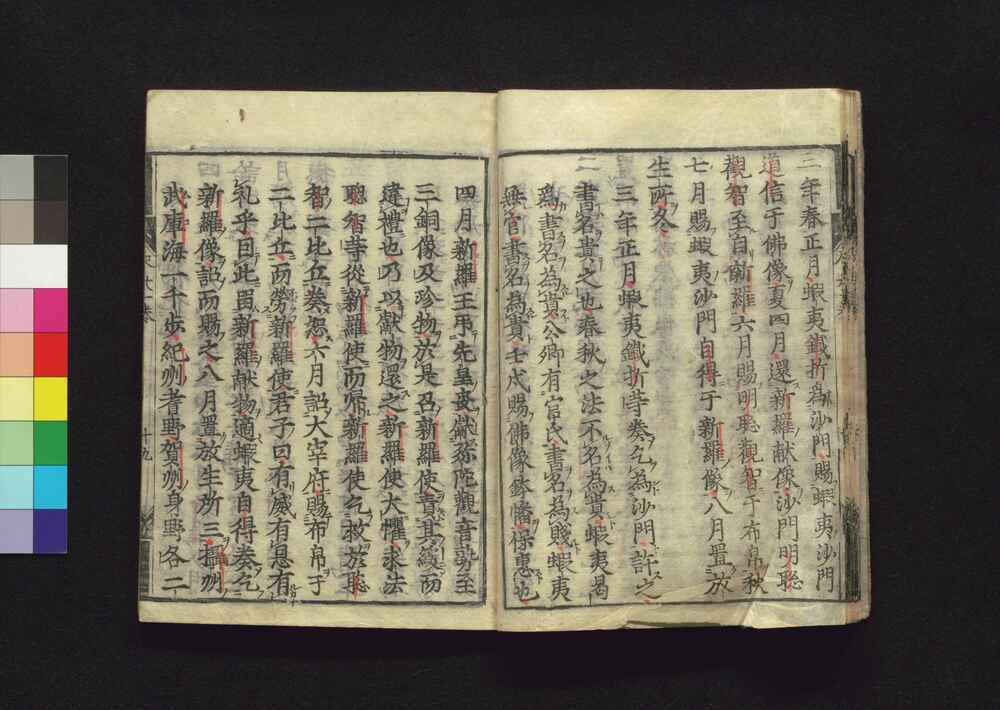 三年春正月蝦夷鐵折為沙門賜蝦夷沙門
道信于佛像夏四月還新羅献像沙門明聡
觀智至自新羅六月賜明聡觀智于布帛秋
七月賜蝦夷沙門自得于新羅像八月置放
生所冬
三年正月蝦夷鐵折等奏乞為沙門許之
書名貴之也春秋之法不名為貴蝦夷曷
為書名為貴公卿有官氏書名為賤蝦夷
無官書名為貴七戌賜佛像鉢幡保惠也
四月新羅王弔先皇喪献弥陀觀音勢至
三銅像及珍物於是召新羅使責其簽而
違禮也乃以献物還之新羅使大懼求法
聰智等從新羅使而帰新羅使乞救於聡
智二比丘奏恕六月詔大宰府賜布帛于
二比丘而勞新羅使君子曰有威有恩有
礼乎曰此固新羅献物適蝦夷自得奏乞
新羅像詔而賜之八月置放生所三摂州
武庫海一千歩紀州者野賀州身野各二
十九